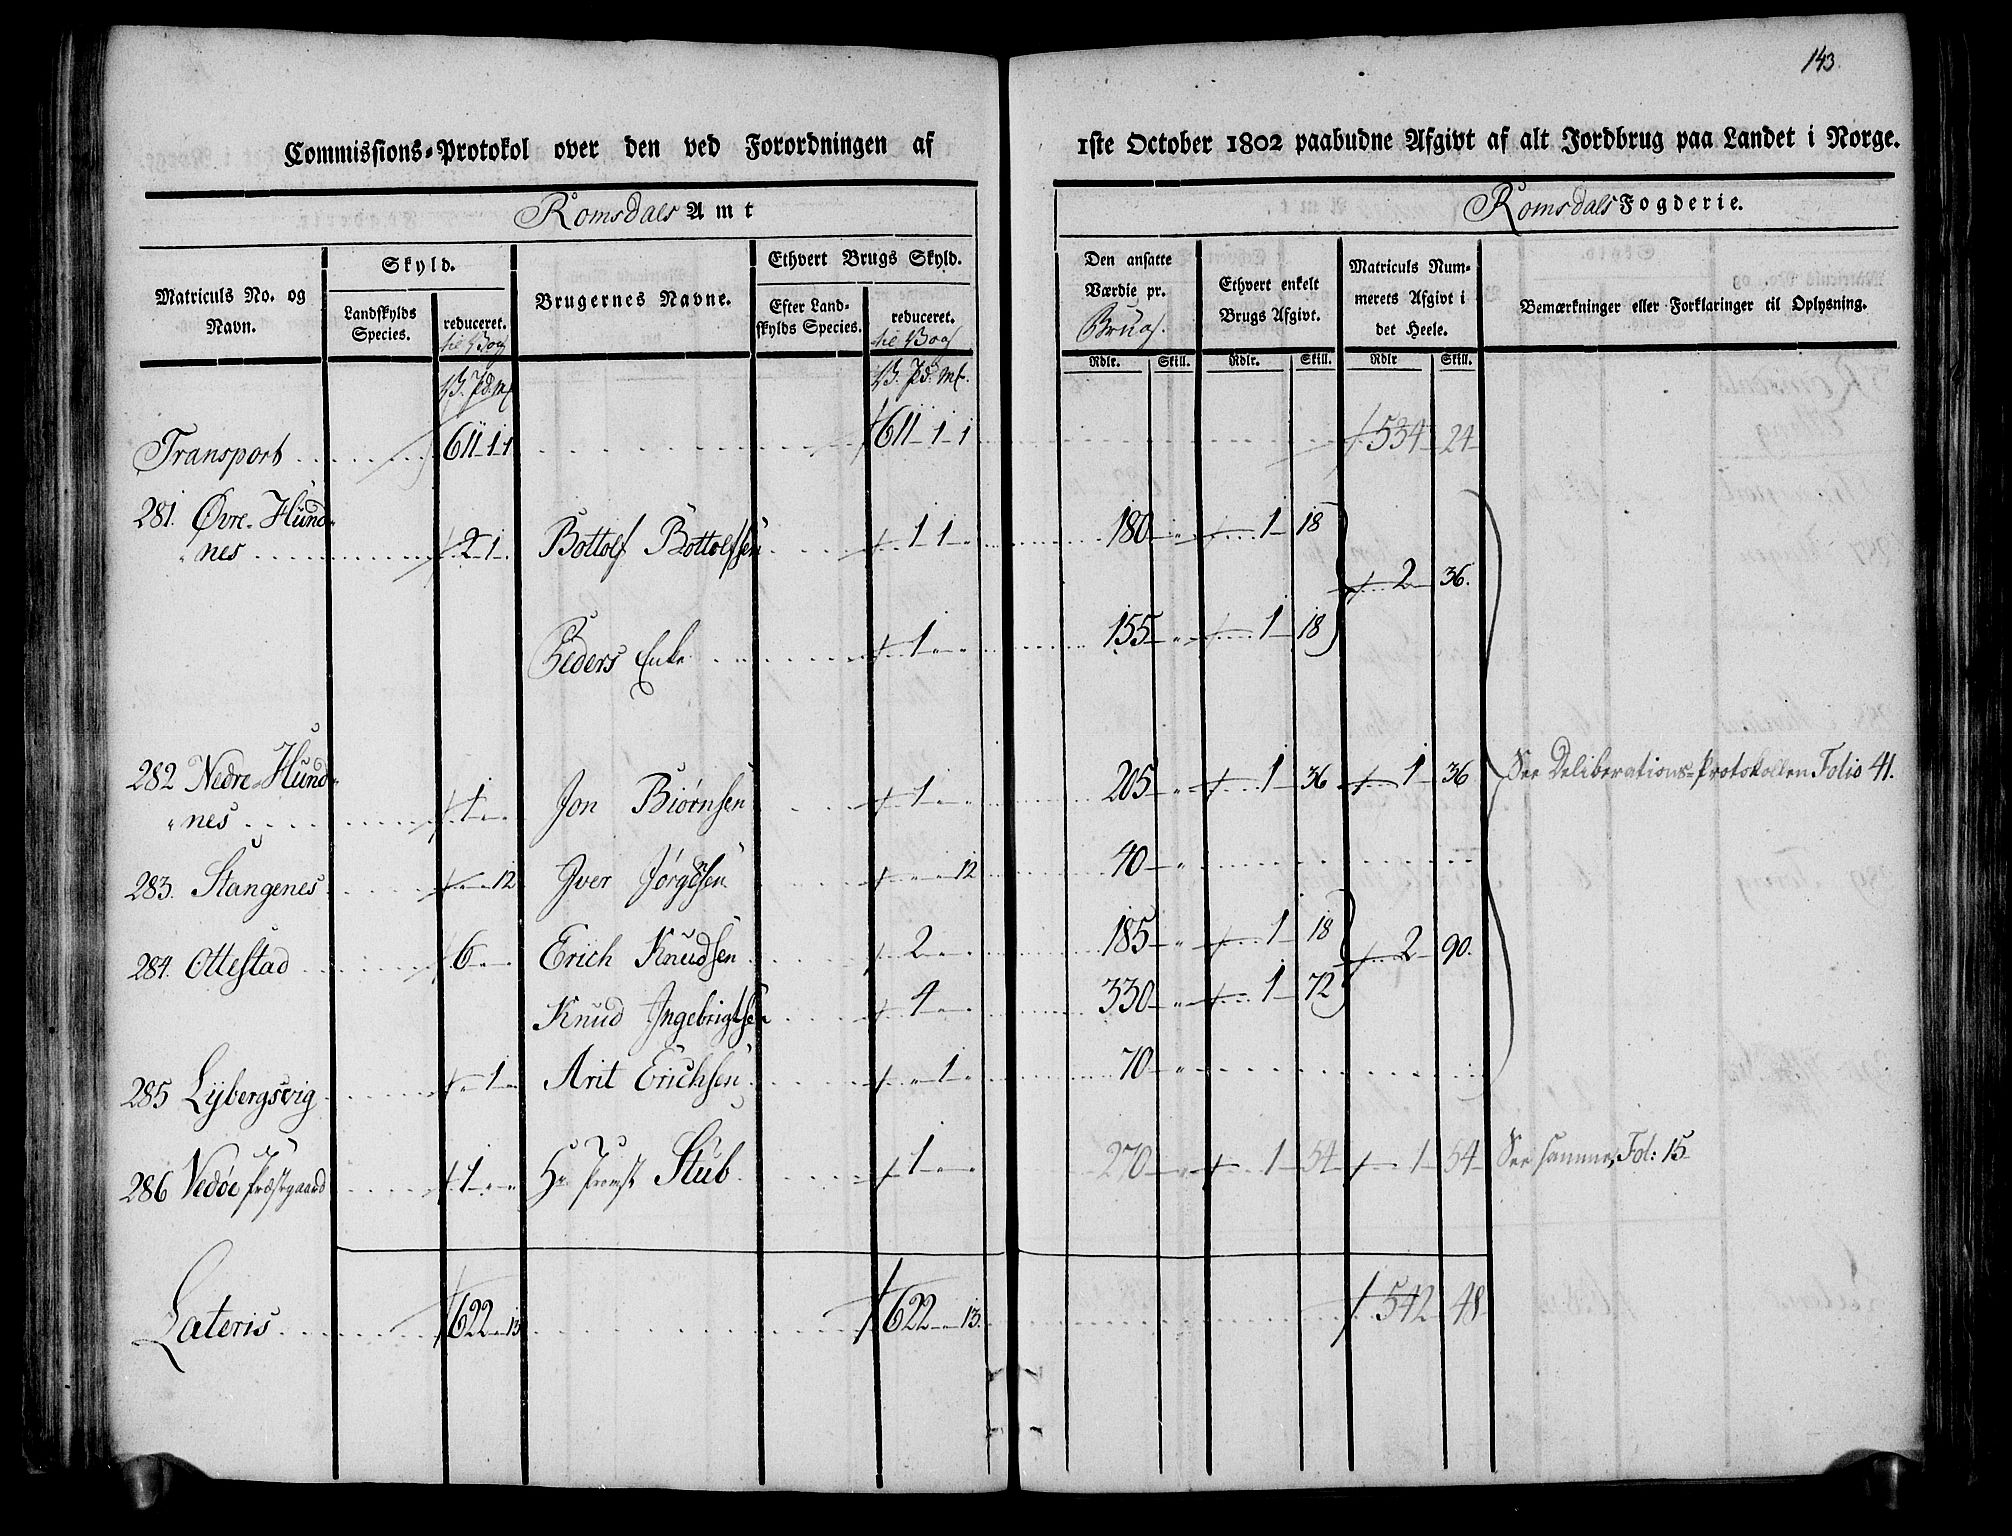 143.
Commissions-Protokol over den ved Forordningen af 1ste October 1802 paabudne Afgivt af alt Jordbrug paa Landet i Norge.
Romsdals Amt
Romsdals Fogderie.
Matriculs No. og Navn.
Skyld.
Landskylds Species.
reduceret. til Bog
Brugernes Navne.
Ethvert Brugs Skyld.
Efter Landskylds Species.
reduceret. til Bog
Den ansatte Værdie pr. Brug.
Ethvert enkelt Brugs Afgivt.
Matriculs Nummerets Afgivt i det Heele.
Bemærkninger eller Forklaringer til Oplysning.
Rdlr. Skill. Rdlr. Skill. Rdlr Skill.
B. Pd. Mk B. Pd. Mk.
Transport 611 - 1 - 1 611 - 1 - 1 534 - 24
281. Øvre-Hund-
"nes 2 - 1 Bottolf Bottolfsen 1 1 180 - " 1 - 18
2 - 36.
Peders Enke 1 " 155 - " 1 - 18
282 Nedre-Hund-
"nes 1 - " - " Jon Biørnsen 1 " " 205 - " 1 - 36 1 - 36 See Deliberations-Protokollen Folio 41.
283. Stangenes " - " 12 Iver Jørgensen " " 12 40 - "
284. Ottestad 6 - " Erich Knudsen 2 - " 185 - " 1 - 18
2 - 90.
Knud Ingebrigtsen 4 " 330 - " 1 - 72
285 Lybergsvig " 1 - " Arit Erichsen " 1 " 70 - "
286 Vedøe Præstgaard 1 - " - " Hr Provst Stub 1 - " 270 - " 1 - 54 1 - 54 See samme, Fol: 15
Lateris 622 - " 13 622 - " 13. 542 48